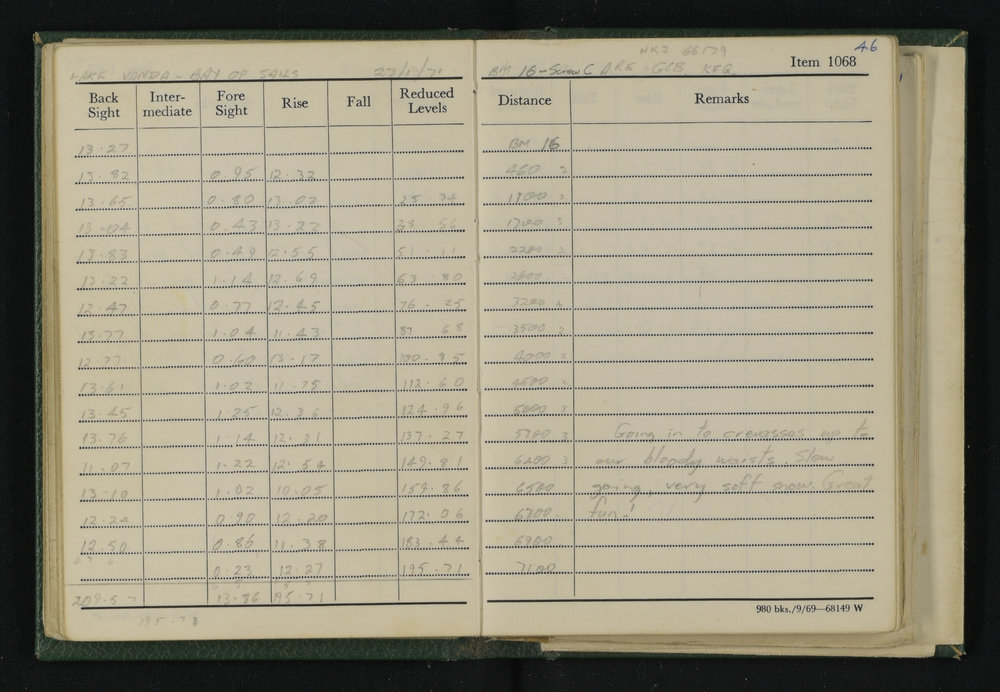 46
NKZ 66179
LAKE VANDA - BAY OF SAILS 23/11/71
BM 16 - Screw C ARE GCB KFQ Item 1068
Back Sight Inter-mediate Fore Sight Rise Fall Reduced Levels Distance Remarks
13.27 BM 16
13.82 0.95 12.32 460
13.65 0.80 13.02 25.34
13.04 0.43 13.22 38.56 1700
13.83 0.49 12.55 51.11 2200
13.22 1.14 12.69 63.80 2600
12.47 0.77 12.45 76.25 3200
1.04 11.43 87.68 3500
12.77 0.60 13.17 100.85 4000
13.61 1.02 11.75 112.60 4500
13.45 1.25 12.36 124.96 5000
13.76 1.14 12.31 137.27 5700 Going in to crevasses up to
11.07 1.22 12.54 149.81 our bloody waists. Slow
13.10 1.02 10.05 159.86 6500 going, very soft snow. Great
12.24 0.90 12.20 172.06 6700 fun!
12.50 0.86 11.38 183.44 6900
0.23 12.27 195.71 7100
209.57 13.86 195.71
195.71
980 bks./9/69—68149 W